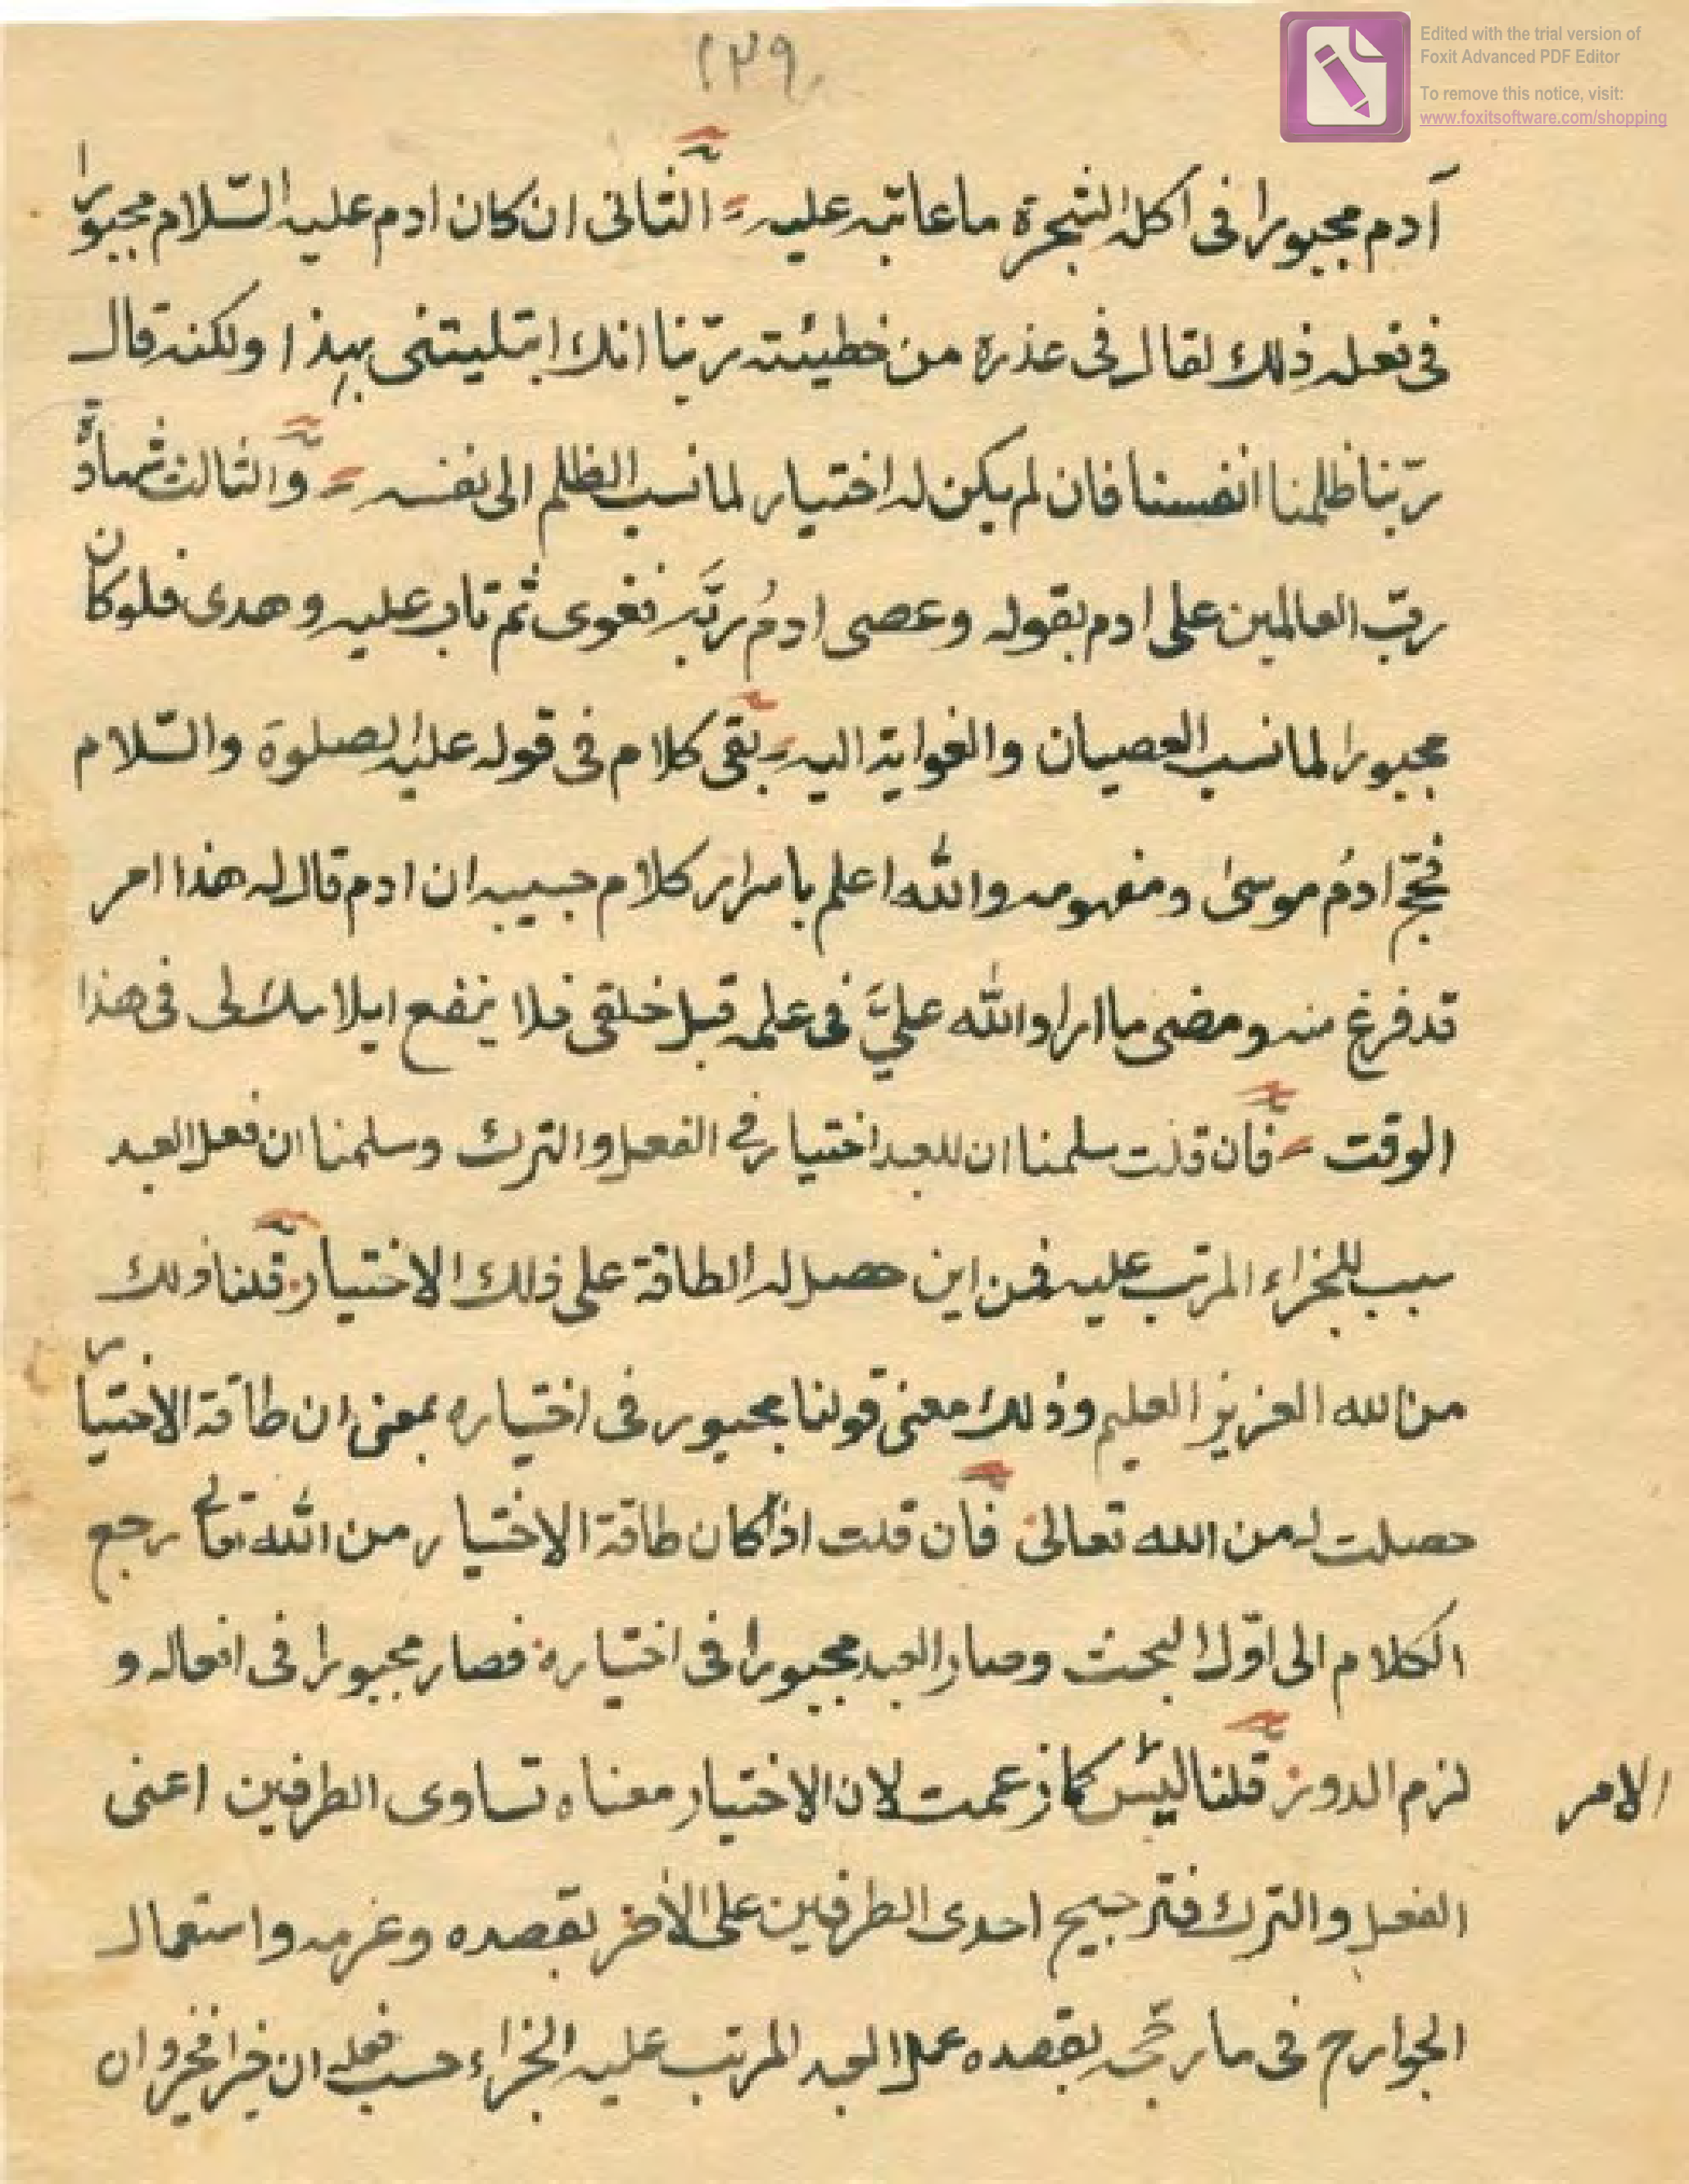 ١٢٩
Edited with the trial version of
Foxit Advanced PDF Editor
To remove this notice, visit:
www.foxitsoftware.com/shopping
آدم مجبورا فى اكله الشجرة ما عاتبه عليه الثانى ان كان ادم عليه السّلام مجبورا
فى فعله ذلك لقال فى عذره من خطيئته ربّنا انك ابتليتنى بهذا ولكنه قال
ربّنا ظلمنا انفسنا فان لم يكن له اختيار لما نسب الظلم الى نفسه والثالث شهادة
ربّ العالمين على ادم بقوله وعصى ادمُ ربَّه فغوى ثم تاب عليه وهدى فلو كان
مجبورا لما نسب العصيان والغواية اليه بقى كلام فى قوله عليه الصلوة والسّلام
فحجّ ادمُ موسىٰ ومفهومه والله اعلم باسرار كلام حبيبه ان ادم قال له هذا امر
قد فرغ منه ومضى ما اراد الله عليَّ فى علمه قبل خلقى فلا ينفع ايلامك لى فى هذا
الوقت فان قلت سلمنا ان للعبد اختيار في الفعل والترك وسلمنا ان فعل العبد
سبب للجزاء المرتب عليه فمن اين حصل له الطاقة على ذلك الاختيار قلنا ذلك
من الله العزيز العليم وذلك معنى قولنا مجبور فى اختياره بمعنى ان طاقة الاختيار
حصلت له من الله تعالىٰ فان قلت اذا كان طاقة الاختيار من الله تعالى رجع
الكلام الى اوّل البحث وصار العبد مجبورا فى اختياره فصار مجبورا فى افعاله و
لزم الدور قلنا ليس كما زعمت لان الاختيار معناه تساوى الطرفين اعنى
الامر
الفعل والترك فترجيح احدى الطرفين على الأخر بقصده وعزمه واستعمال
الجوارح فى ما رجّحه بقصده عمل العبد المرتب عليه الجزاء حسب فعله ان خيرا فخير وان